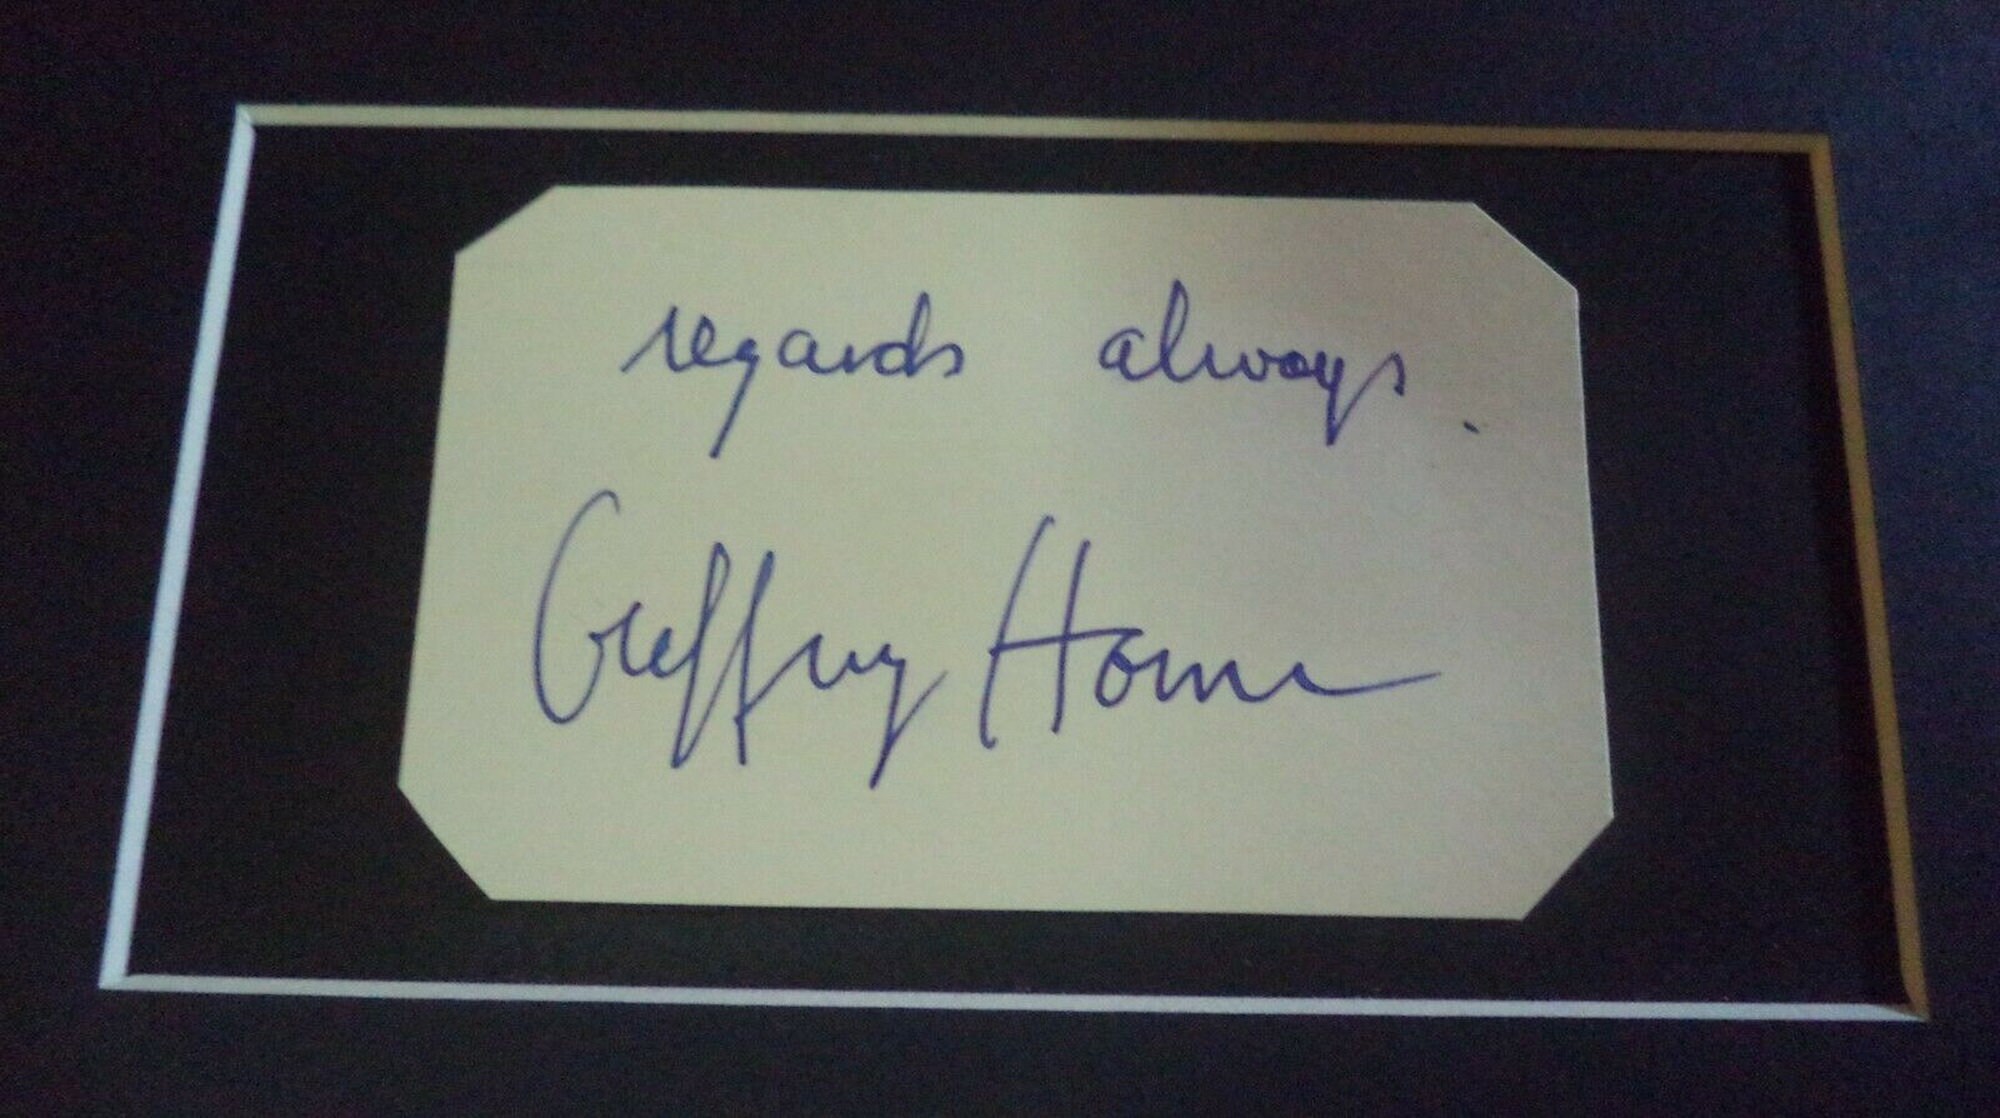 regards always.
Geoffrey Horne